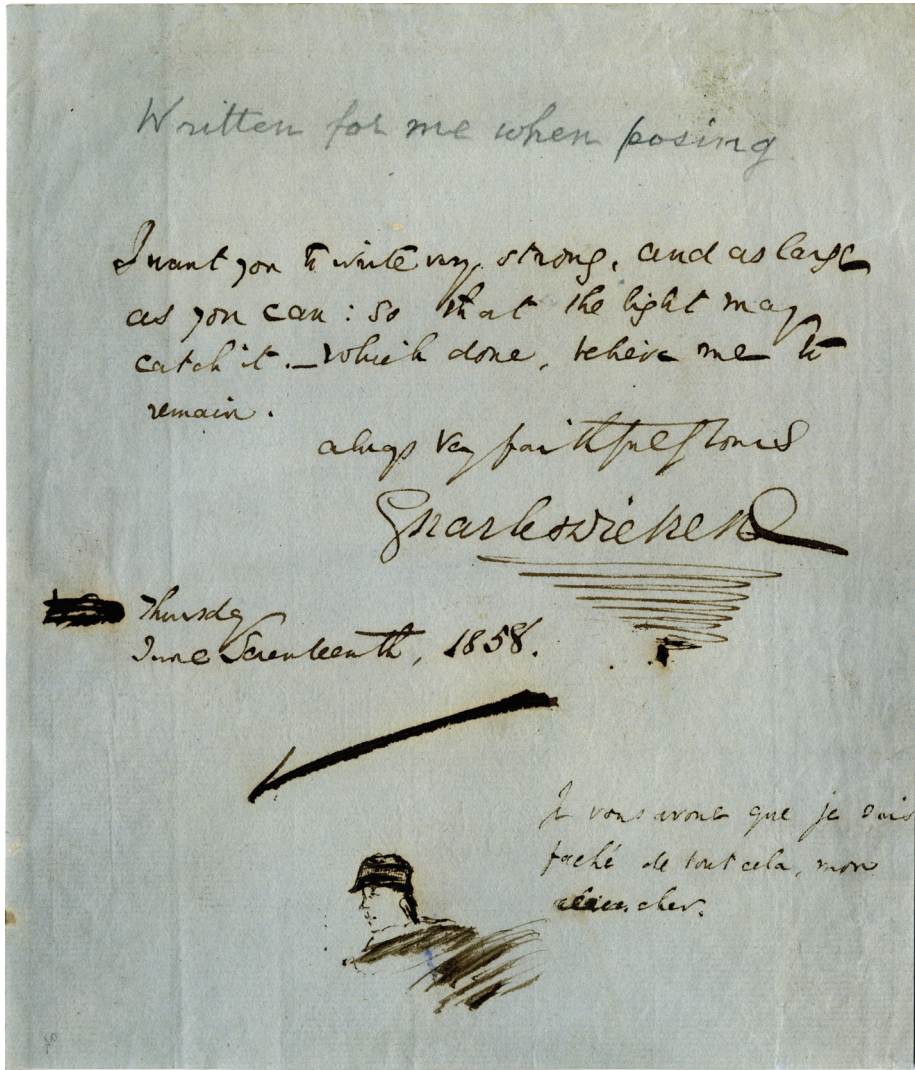 Written for me when posing
I want you to write very strong, and as large
as you can: so that the light may
catch it. — Which done, believe me to
remain.
always very faithfully yours
Charles Dickens
Thursday
June Seventeenth, 1858.
Je vous avoue que je suis
faché de tout cela, mon
cher.